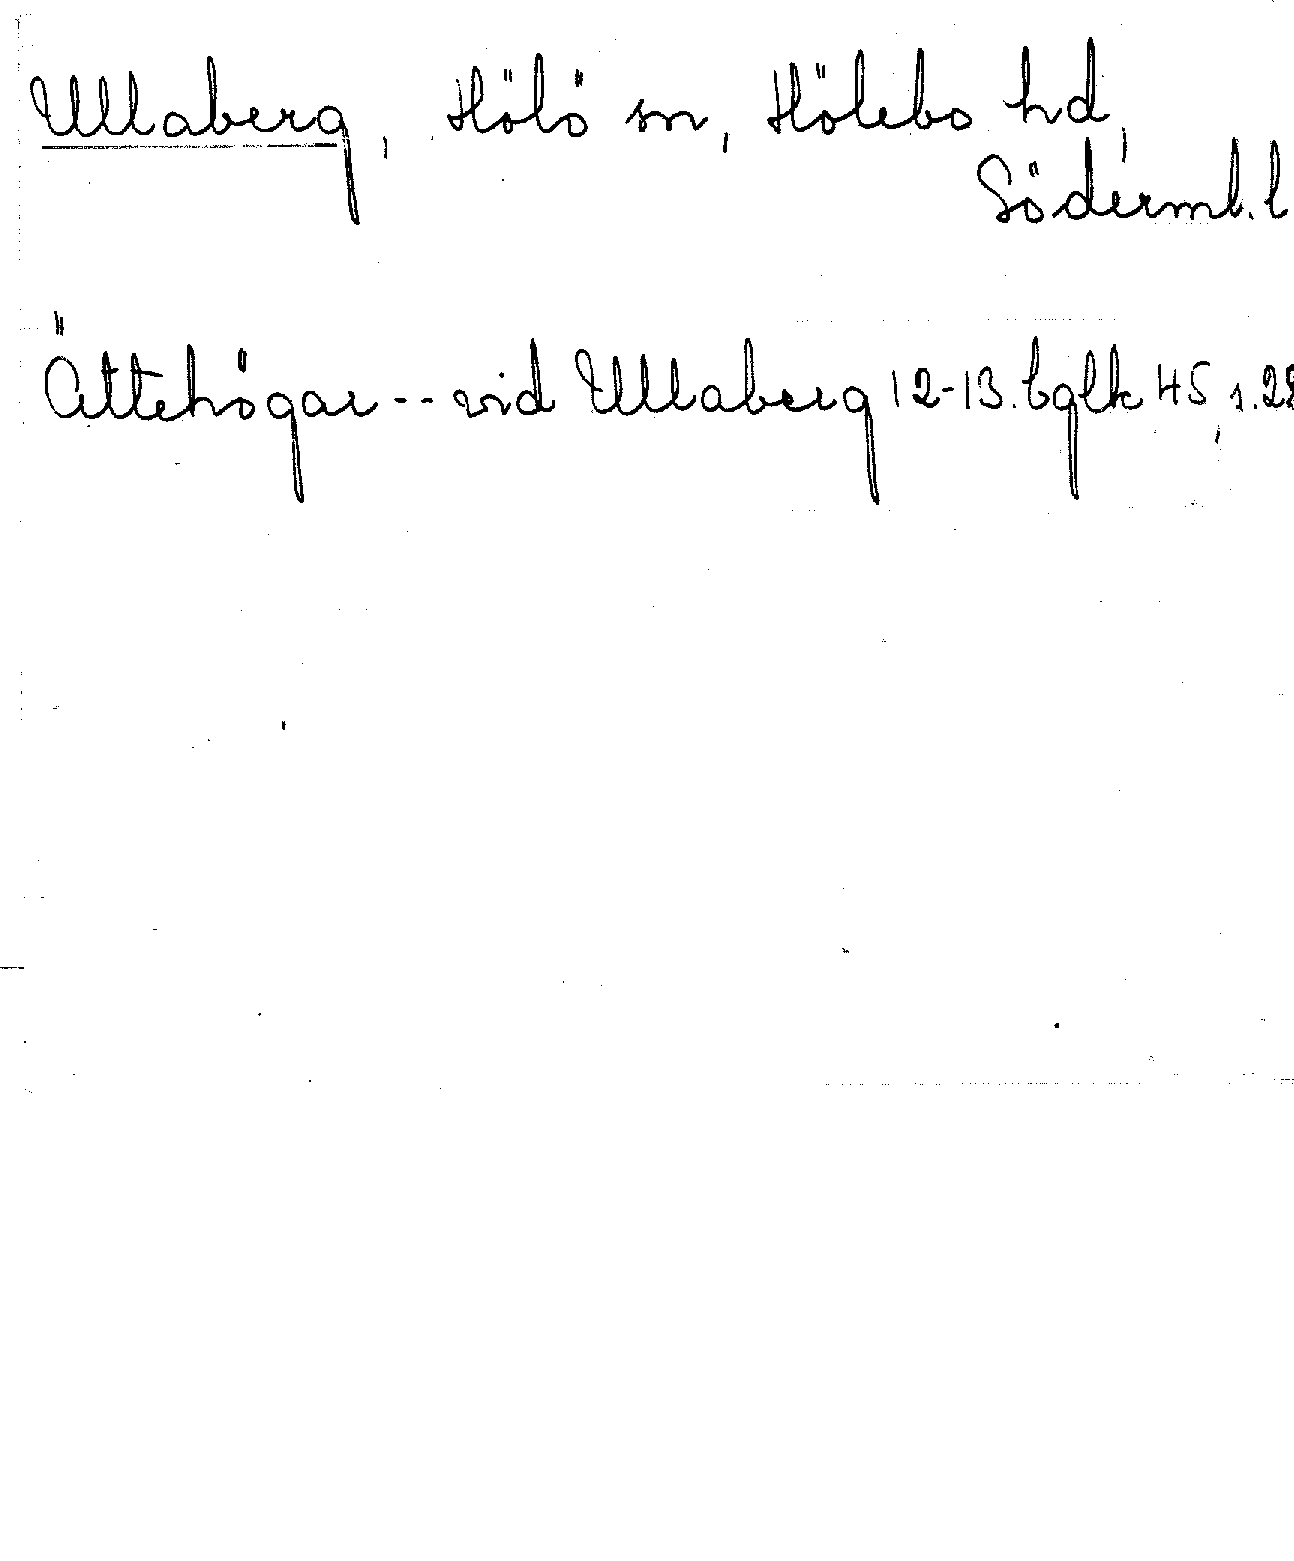 Ullaberg, Hölö sn, Hölebo hd,
Söderml. l
Ättehögar -- vid Ullaberg 12-13. bglk 45, s. 28